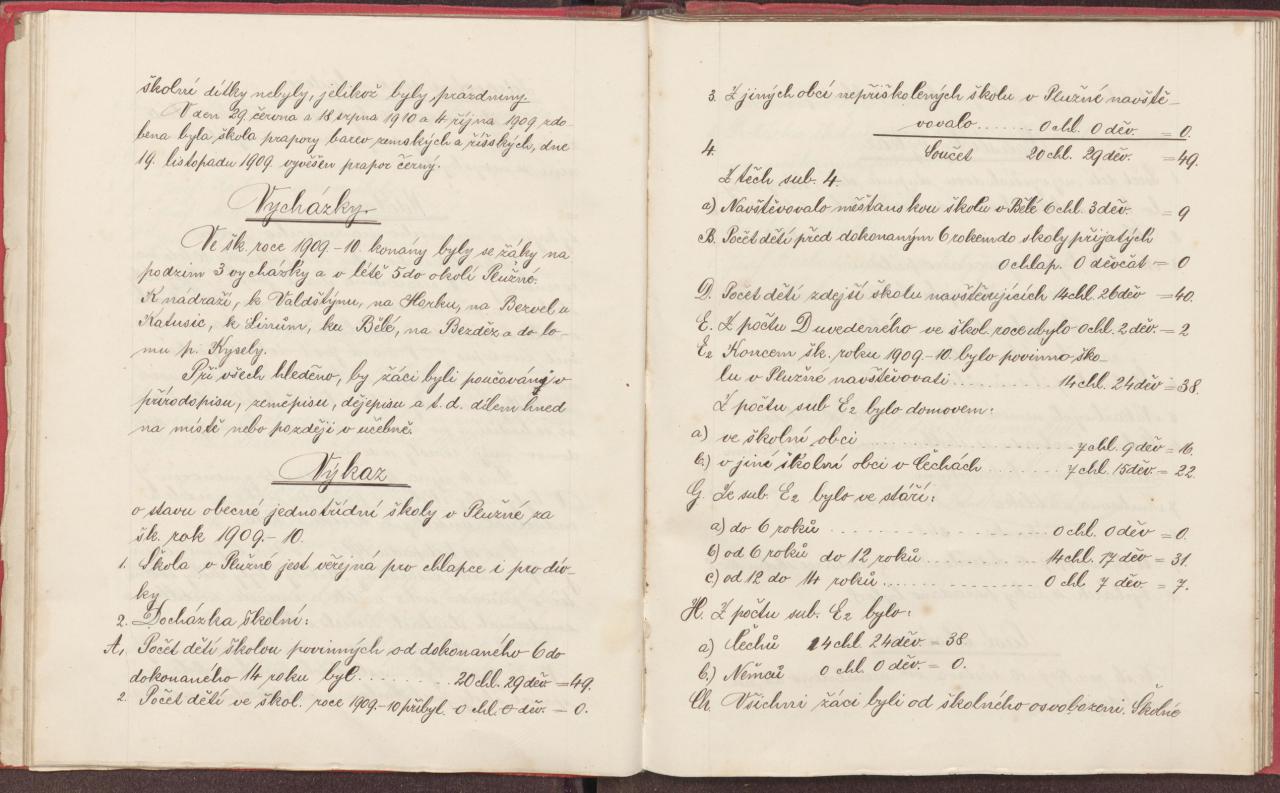 školní dítky nebyly, jelikož byly prázdniny.
V den 29. června a 18 srpna 1910 a 4 října 1909 zdo-
bena byla škola prapory barev zemských a říšských, dne
19. listopadu 1909 vyvěšen prapor černý.
Vycházky.
Ve šk. roce 1909-10. konány byly se žáky na
podzim 3 vycházky a v létě 5 do okolí Plužné.
K nádraží, k Valdštýnu, na Horku, na Bezvel u
Katusic, k Linům, ku Bělé, na Bezděz a do lo-
mu p. Kysely.
Při všech hleděno, by žáci byli poučováni v
přírodopisu, zeměpisu, dějepisu a t. d. dílem hned
na místě nebo později v učebně.
Výkaz
o stavu obecné jednotřídní školy v Plužné za
šk. rok 1909.-10.
1. Škola v Plužné jest veřejná pro chlapce i pro dív-
ky
2. Docházka školní:
A1 Počet dětí školou povinných od dokonaného 6 do
dokonaného 14 roku byl........ 20 chl. 29 děv. = 49.
2. Počet dětí ve škol. roce 1909.-10 přibyl. 0 chl. 0 děv. = 0.
3. Z jiných obcí nepřiškolených školu v Plužné navště-
vovalo....... 0 chl. 0 děv. = 0.
4. Součet 20 chl. 29 děv. = 49.
Z těch sub. 4.
a) Navštěvovalo měšťanskou školu v Bělé 6 chl. 3 děv. = 9
B. Počet dětí před dokonaným 6 rokem do skoly přijatých
0 chlap. 0 děvčat = 0
D. Počet dětí zdejší školu navštěvujících 14 chl. 26 děv = 40.
E. Z počtu D uvedeného ve škol. roce ubylo 0 chl. 2 děv. = 2
E2 Koncem šk. roku 1909-10. bylo povinno ško-
lu v Plužné navštěvovati.......... 14 chl. 24 děv = 38.
Z počtu sub E2 bylo domovem:
a) ve školní obci .................. 7 chl. 9 děv = 16.
b.) v jiné školní obci v Čechách....... 7 chl. 15 děv. = 22.
G. Ze sub. E2 bylo ve stáří:
a) do 6 roků .................. 0 chl. 0 děv = 0.
b) od 6 roků do 12 roků......... 14 chl. 17 děv = 31.
c) od 12 do 14 roků............ 0 chl 7 děv. = 7.
H. Z počtu sub. E2 bylo:
a) Čechů 14 chl. 24 děv. = 38.
b.) Němců 0 chl. 0 děv. = 0.
Ch. Všichni žáci byli od školného osvobozeni. Školné